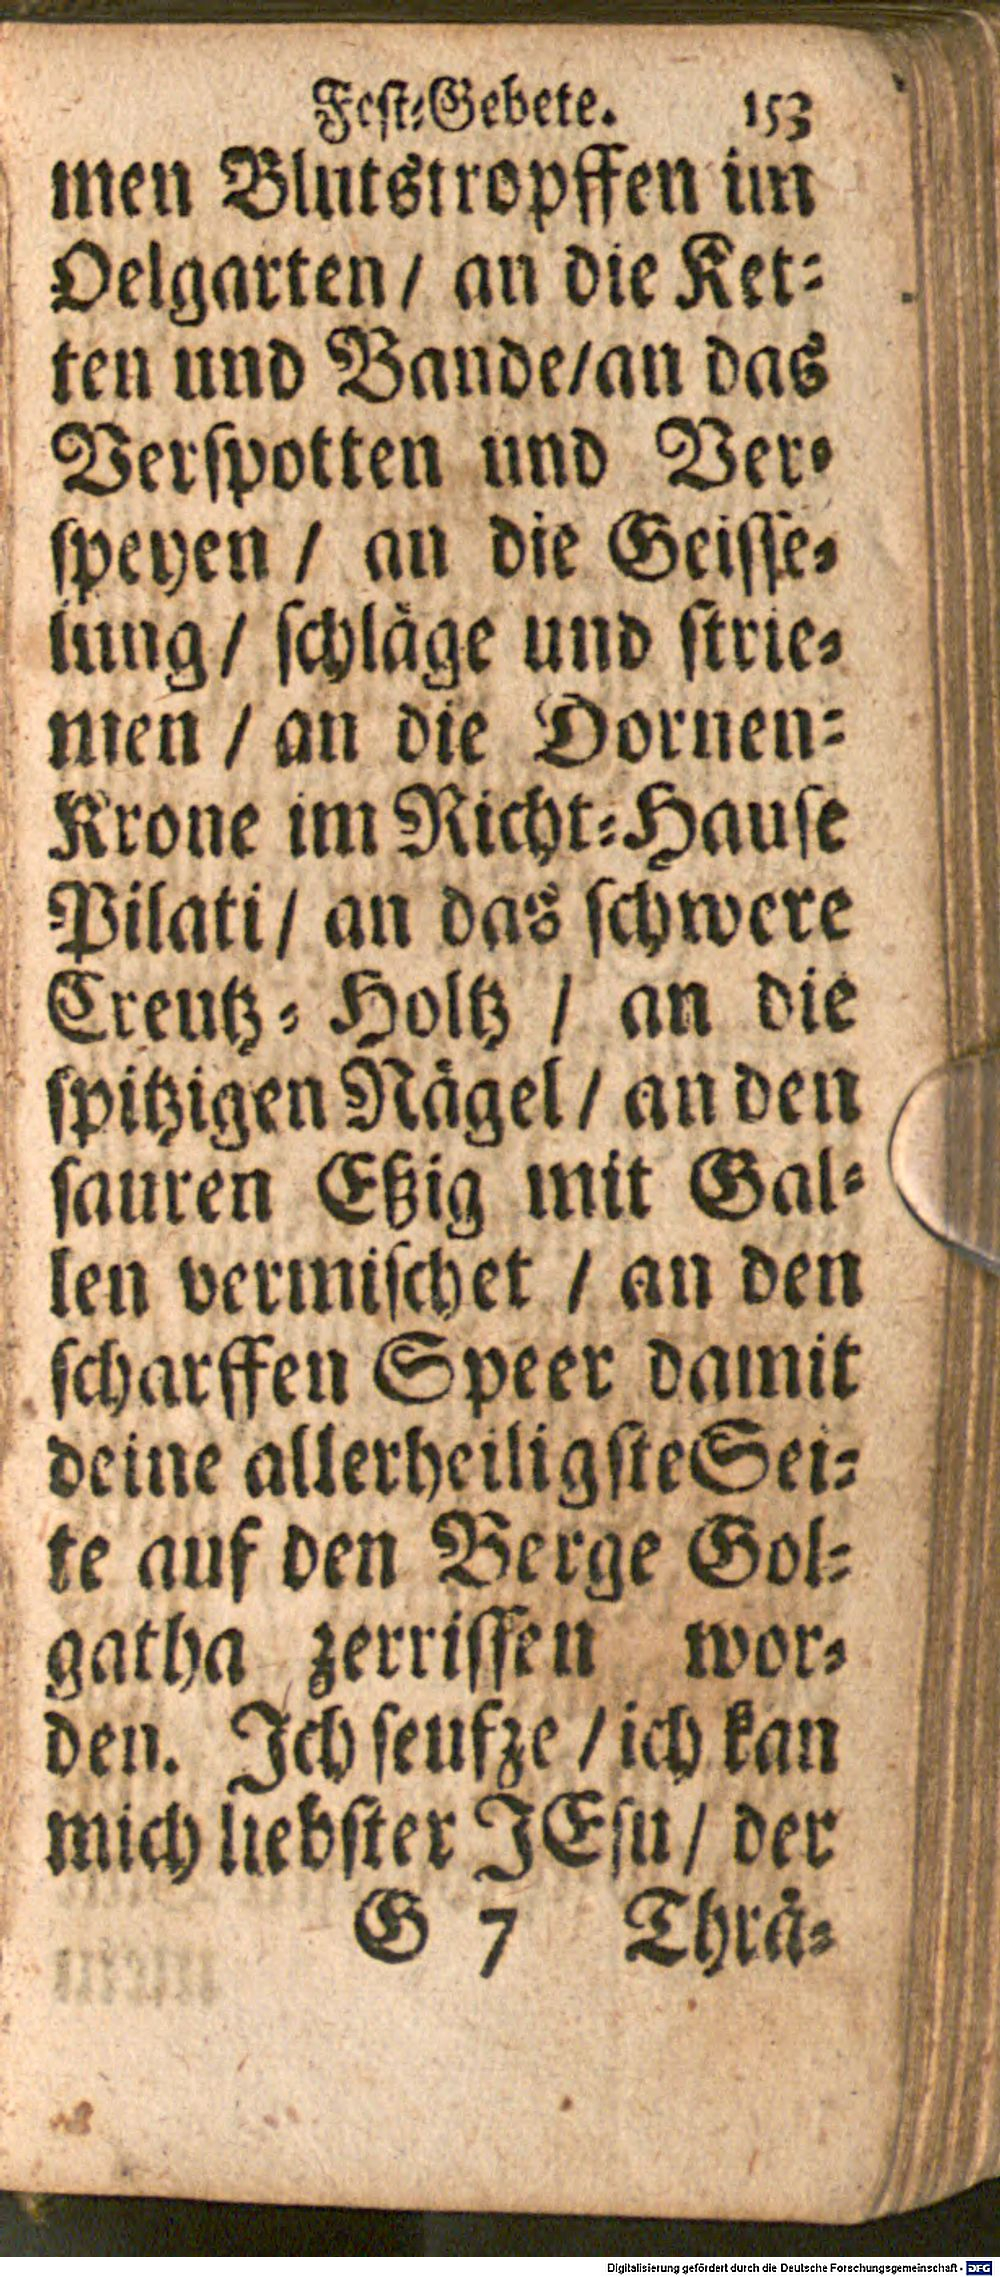 Fest⸗Gebete. 153
men Blutstropffen im
Oelgarten / an die Ket⸗
ten und Bande / an das
Verſpotten und Ver⸗
ſpeyen / an die Geiſſe⸗
lung / ſchlåge und ſtrie⸗
men / an die Dornen⸗
Krone im Richt⸗Hauſe
Pilati / an das ſchwere
Creutz⸗Holtz / an die
ſpitzigen Någel / an den
ſauren Eßig mit Gal⸗
len vermiſchet / an den
ſcharffen Speer damit
deine allerheiligſte Sei⸗
te auf den Berge Gol⸗
gatha zerriſſen wor⸗
den. Ich ſeufze / ich kan
mich liebſter JEſu / der
G 7 Thrå⸗
Digitalisierung gefördert durch die Deutsche Forschungsgemeinschaft - DFG